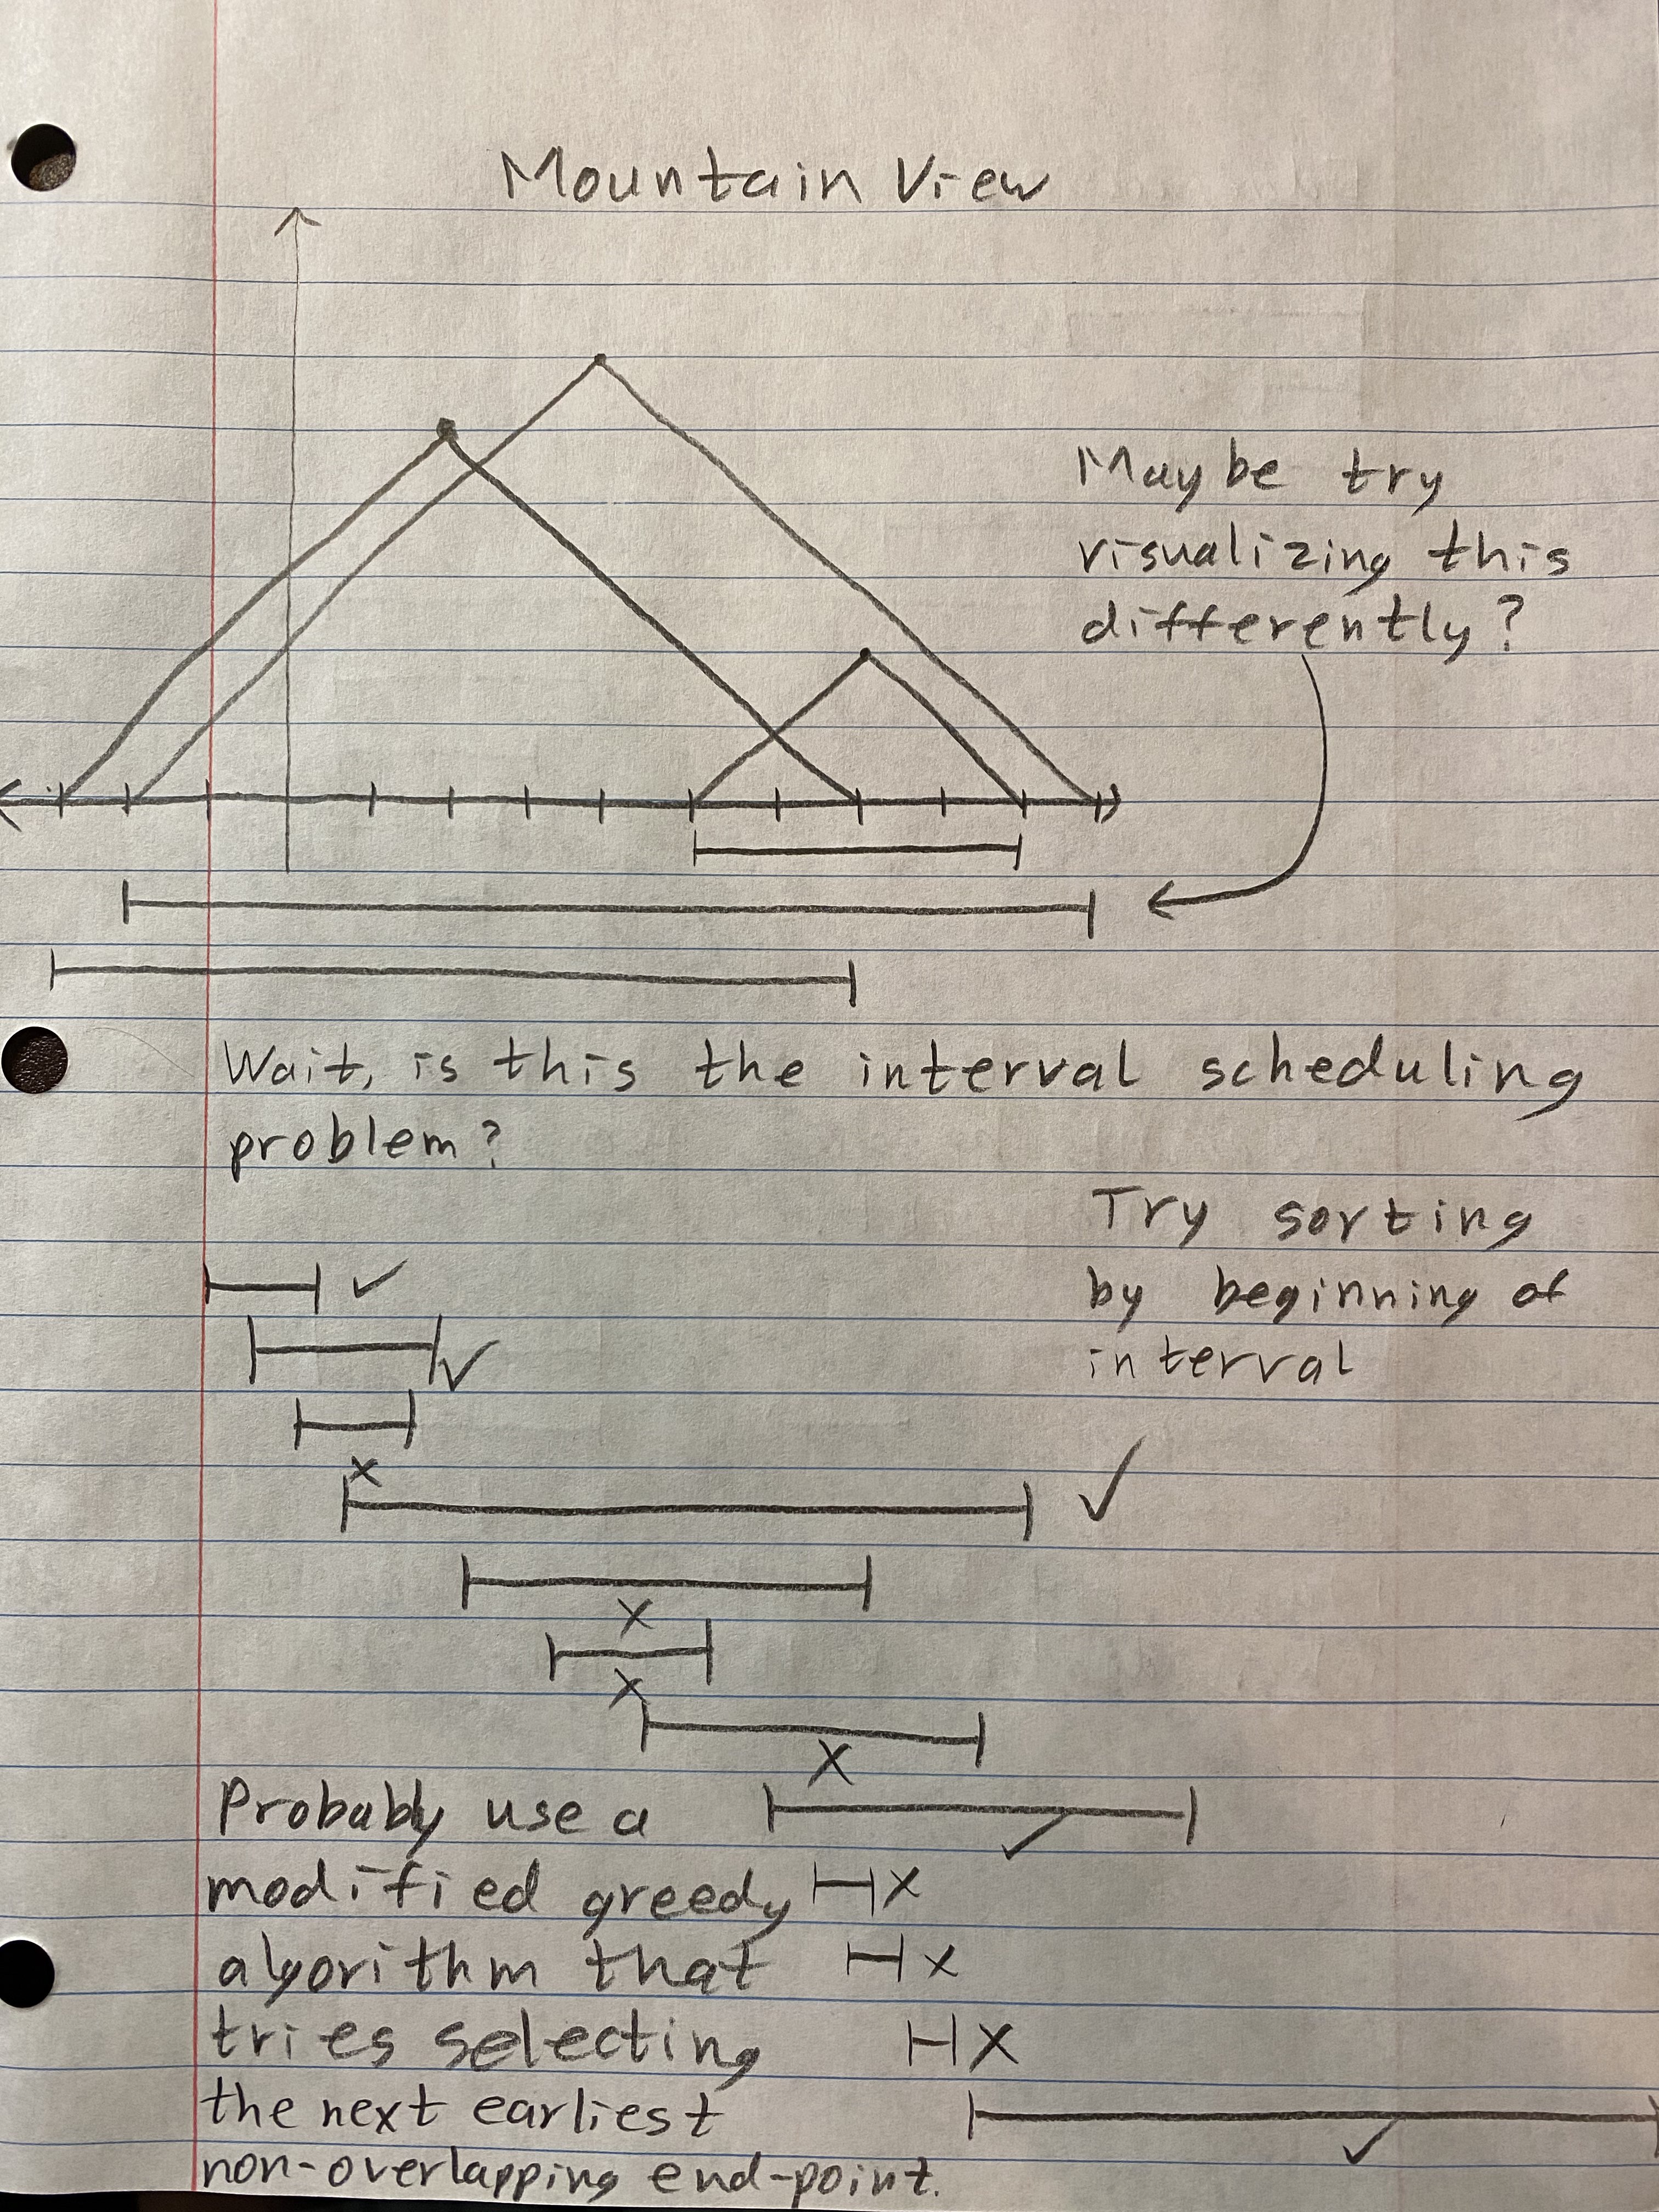 Mountain View
Maybe try
visualizing this
differently?
Wait, is this the interval scheduling
problem?
Try sorting
by beginning of
interval
Probably use a
modified greedy
algorithm that
tries selecting
the next earliest
non-overlapping end-point.